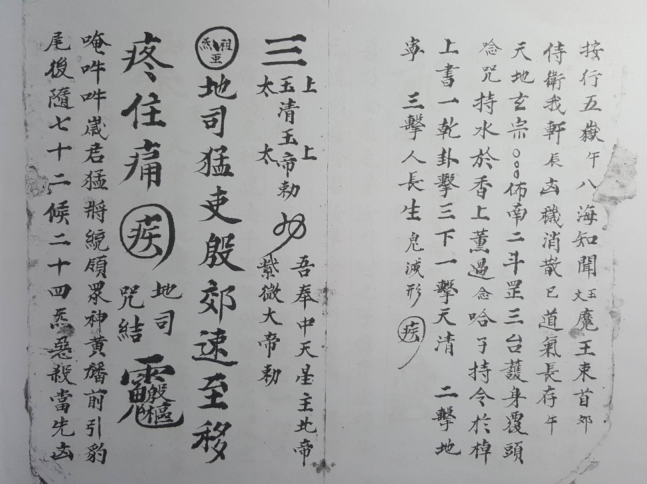 按行五嶽午八海知聞玉文魔王束首卯
侍衛我軒辰凶穢消散巳道氣長存午
天地玄宗佈南二斗罡三台護身覆頭
念咒持水於香上薰過念哈子持令於棹
上書一乾卦擊三下一擊天清 二擊地
寧 三擊人長生 鬼滅形 疾
三 上太玉清玉帝勅上太
吾奉中天星主北帝
紫微大帝勅
祖炁 地司猛吏殷郊速至移
疼住痛 疾 地司咒結
唵吽吽嵗君猛將統領眾神黃旛前引豹
尾後隨七十二候二十四炁惡殺當先凶